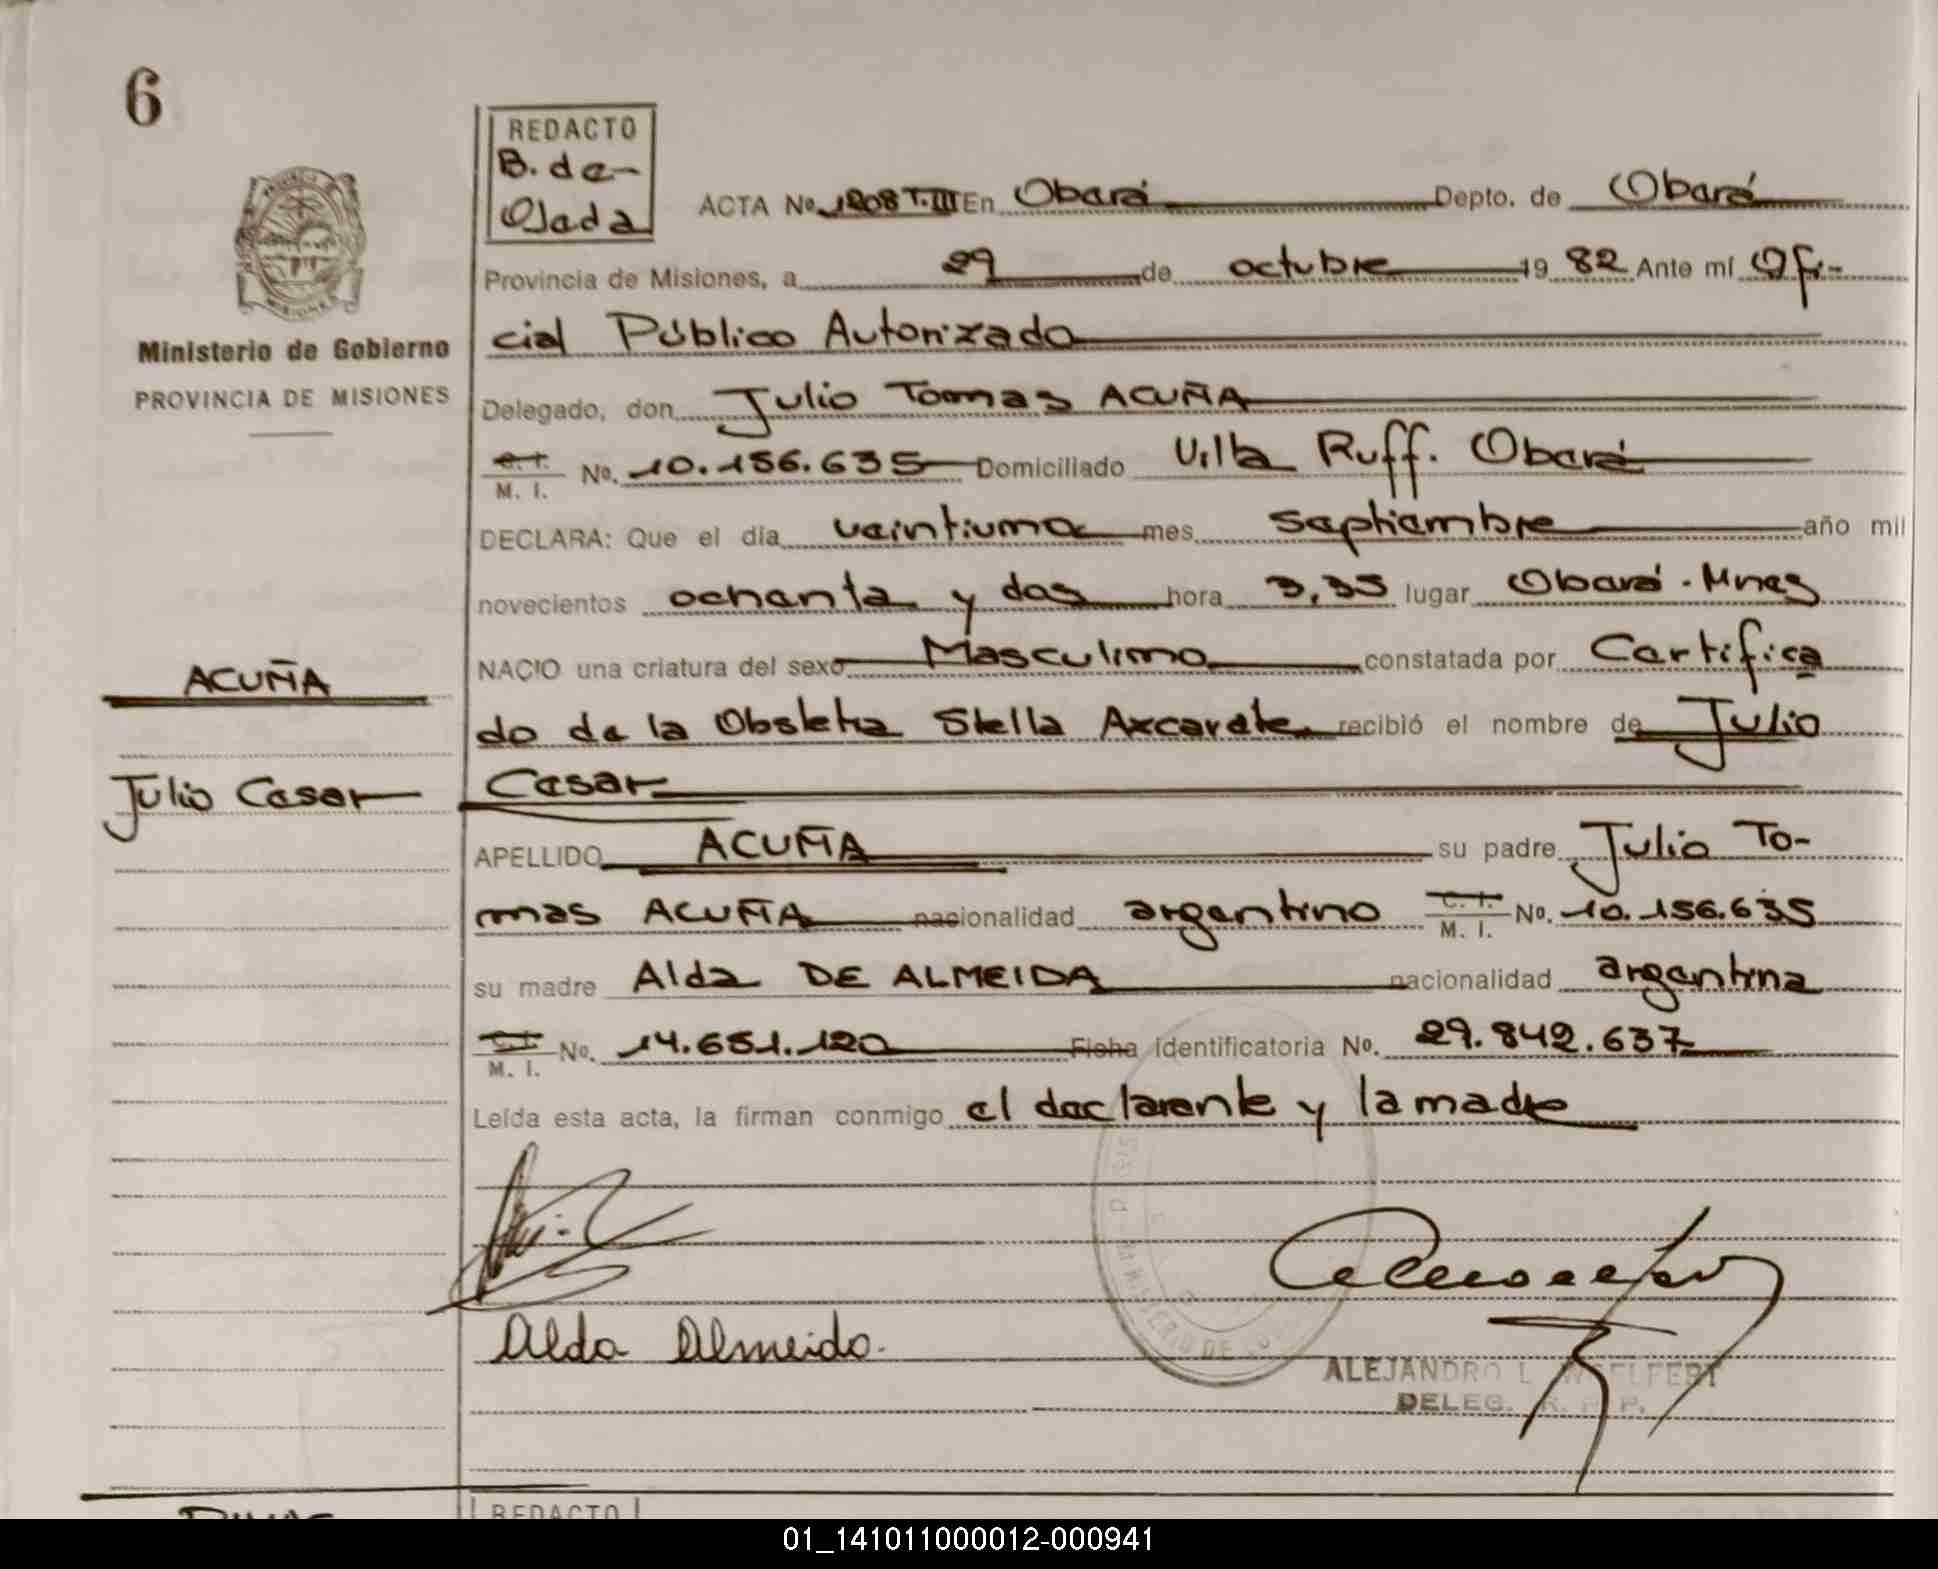 6
REDACTO
B. de-
Ojeda
ACTA No. 1208 T. III En Oberá Depto. de Oberá
Provincia de Misiones, a 29 de octubre 19 82 Ante mí Ofi-
cial Público Autorizado
Ministerio de Gobierno
PROVINCIA DE MISIONES
Delegado, don Julio Tomas ACUÑA
C. I.
M. I. No. 10.156.635 Domiciliado Villa Ruff. Oberá
DECLARA: Que el día veintiuno mes septiembre año mil
novecientos ochenta y dos hora 3,35 lugar Oberá - Mnes
NACIO una criatura del sexo Masculino constatada por Certifica
ACUÑA
do de la Obstetra Stella Axcarate recibió el nombre de Julio
Julio Cesar
Cesar
APELLIDO ACUÑA su padre Julio To-
mas ACUÑA nacionalidad argentino C. I.
M. I. No. 10.156.635
su madre Alda DE ALMEIDA nacionalidad argentina
C. I.
M. I. No. 14.651.120 Ficha identificatoria No. 29.842.637
Leída esta acta, la firman conmigo el declarante y la madre
Alda Almeida.
ALEJANDRO L
DELEG. R. P.
REDACTO
01_141011000012-000941